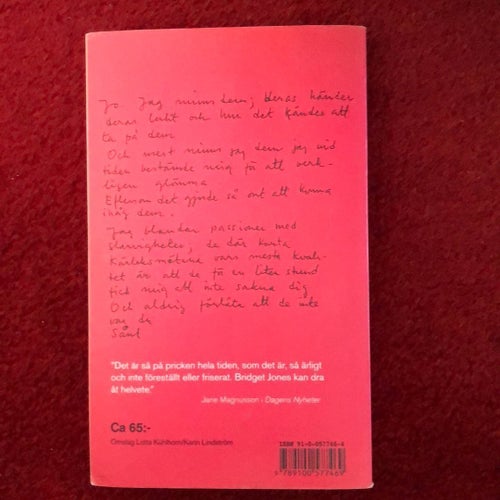 Jo. Jag minns dem; deras händer
deras lukt och hur det kändes att
ta på dem
Och mest minns jag dem jag vid
tiden bestämde mig få att verk-
ligen glömma
Eftersom det gjorde så ont att komma
ihåg dem.
Jag blandar passioner med
slarvigheter, de där korta
Kärleksmötena vars mesta kvali-
tet är att de få en liten stund
fick mig att inte sakna dig
Och aldrig förlåta att de inte
var du
Sånt
"Det är så på pricken hela tiden, som det är, så ärligt
och inte föreställt eller friserat. Bridget Jones kan dra
åt helvete."
Jane Magnusson i Dagens Nyheter
Ca 65:-
Omslag Lotta Kühlhorn/Karin Lindström
ISBN 91-0-057746-4
9789100577469